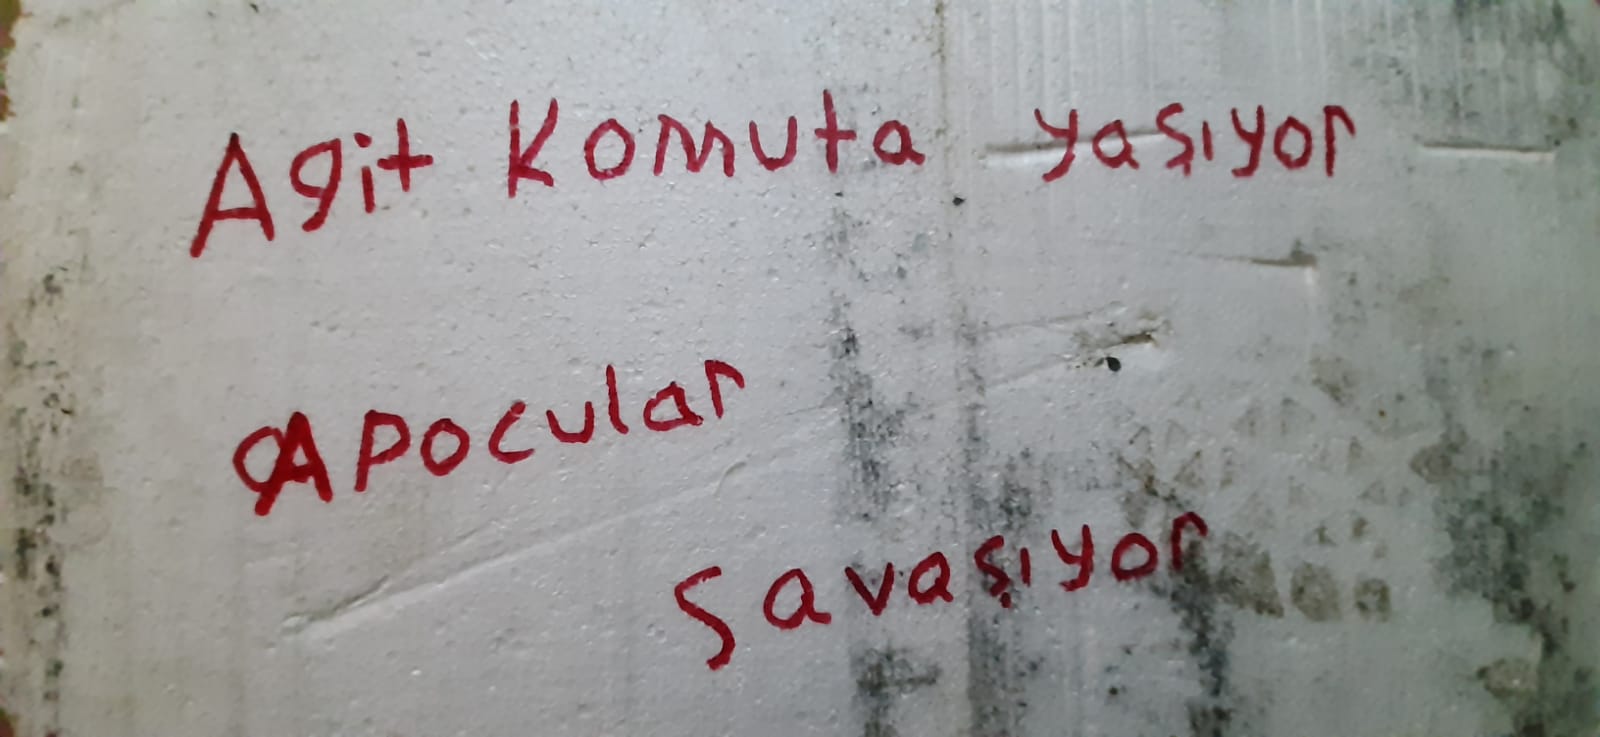 Agit Komuta yaşıyor
Apocular
Savaşıyor